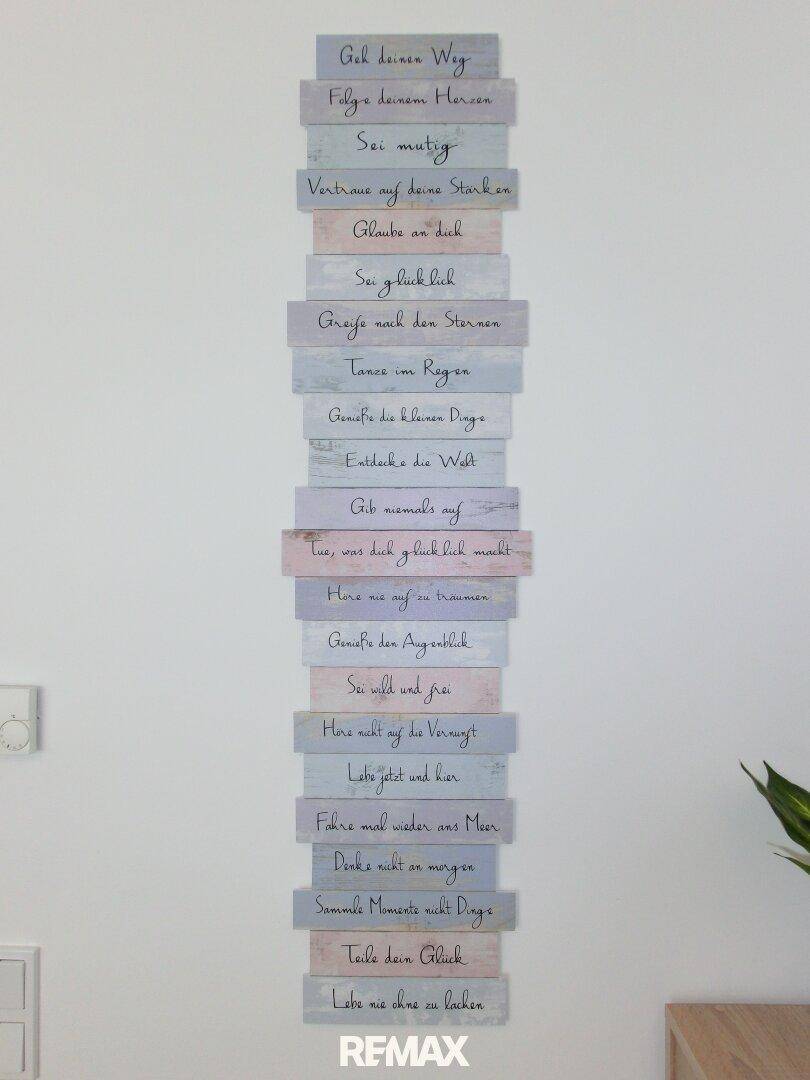 Geh deinen Weg
Folge deinem Herzen
Sei mutig
Vertraue auf deine Stärken
Glaube an dich
Sei glücklich
Greife nach den Sternen
Tanze im Regen
Genieße die kleinen Dinge
Entdecke die Welt
Gib niemals auf
Tue, was dich glücklich macht
Höre nie auf zu träumen
Genieße den Augenblick
Sei wild und frei
Höre nicht auf die Vernunft
Lebe jetzt und hier
Fahre mal wieder ans Meer
Denke nicht an morgen
Sammle Momente nicht Dinge
Teile dein Glück
Lebe nie ohne zu lachen
REMAX